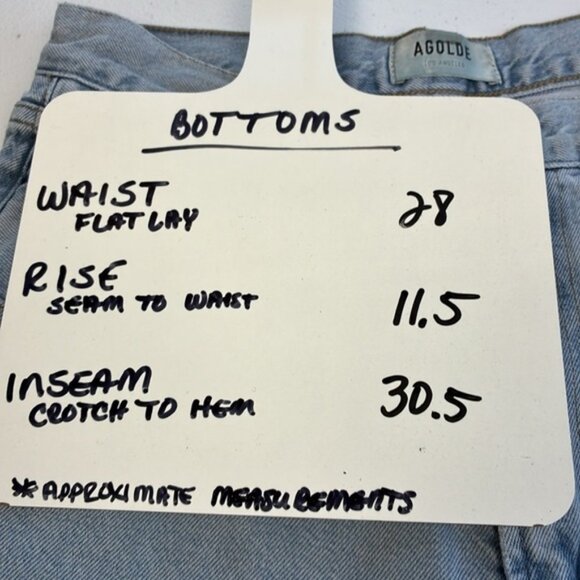 AGOLDE
LOS ANGELES
BOTTOMS
WAIST 28
FLAT LAY
RISE
SEAM TO WAIST 11.5
INSEAM
CROTCH TO HEM 30.5
*APPROXIMATE MEASUREMENTS